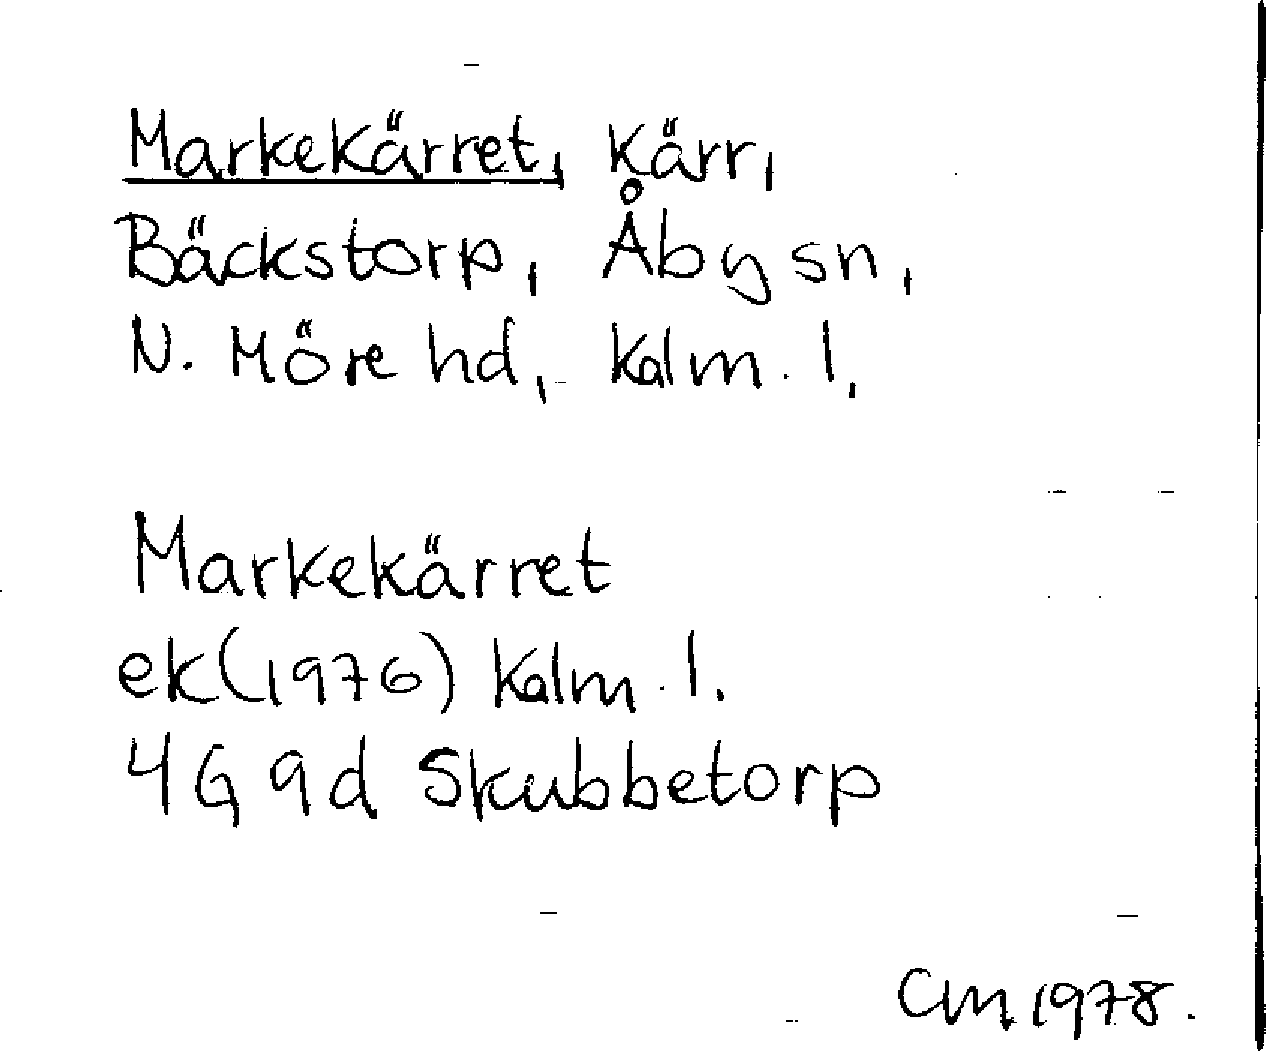 Markekärret, kärr,
Bäckstorp, Åby sn,
N. Möre hd, Kalm. l,
Markekärret
ek(1976) Kalm. l.
4G 9d Skubbetorp
CM 1978.